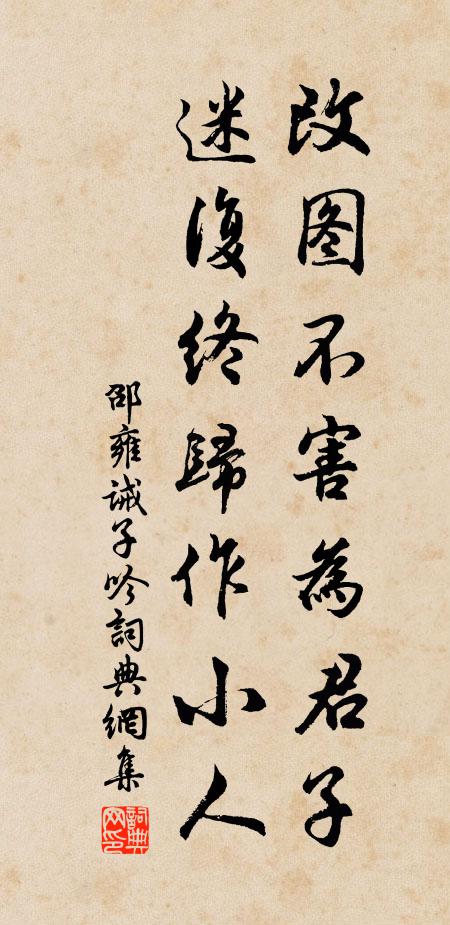 改图不害為君子
迷復终歸作小人
邵雍诫子吟詞典網集
詞典网印